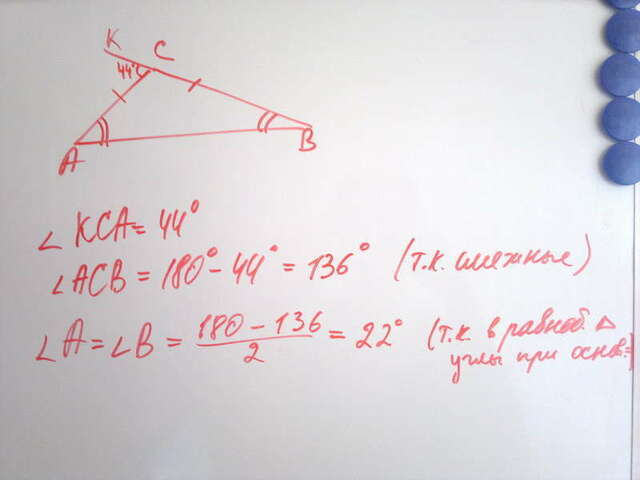 K
C
44°
A
B
∠ KCA = 44°
∠ACB = 180° - 44° = 136° (т.к. смежные)
∠A = ∠B = (180 - 136)/2 = 22° (т.к. в равноб. △
углы при основ. =)